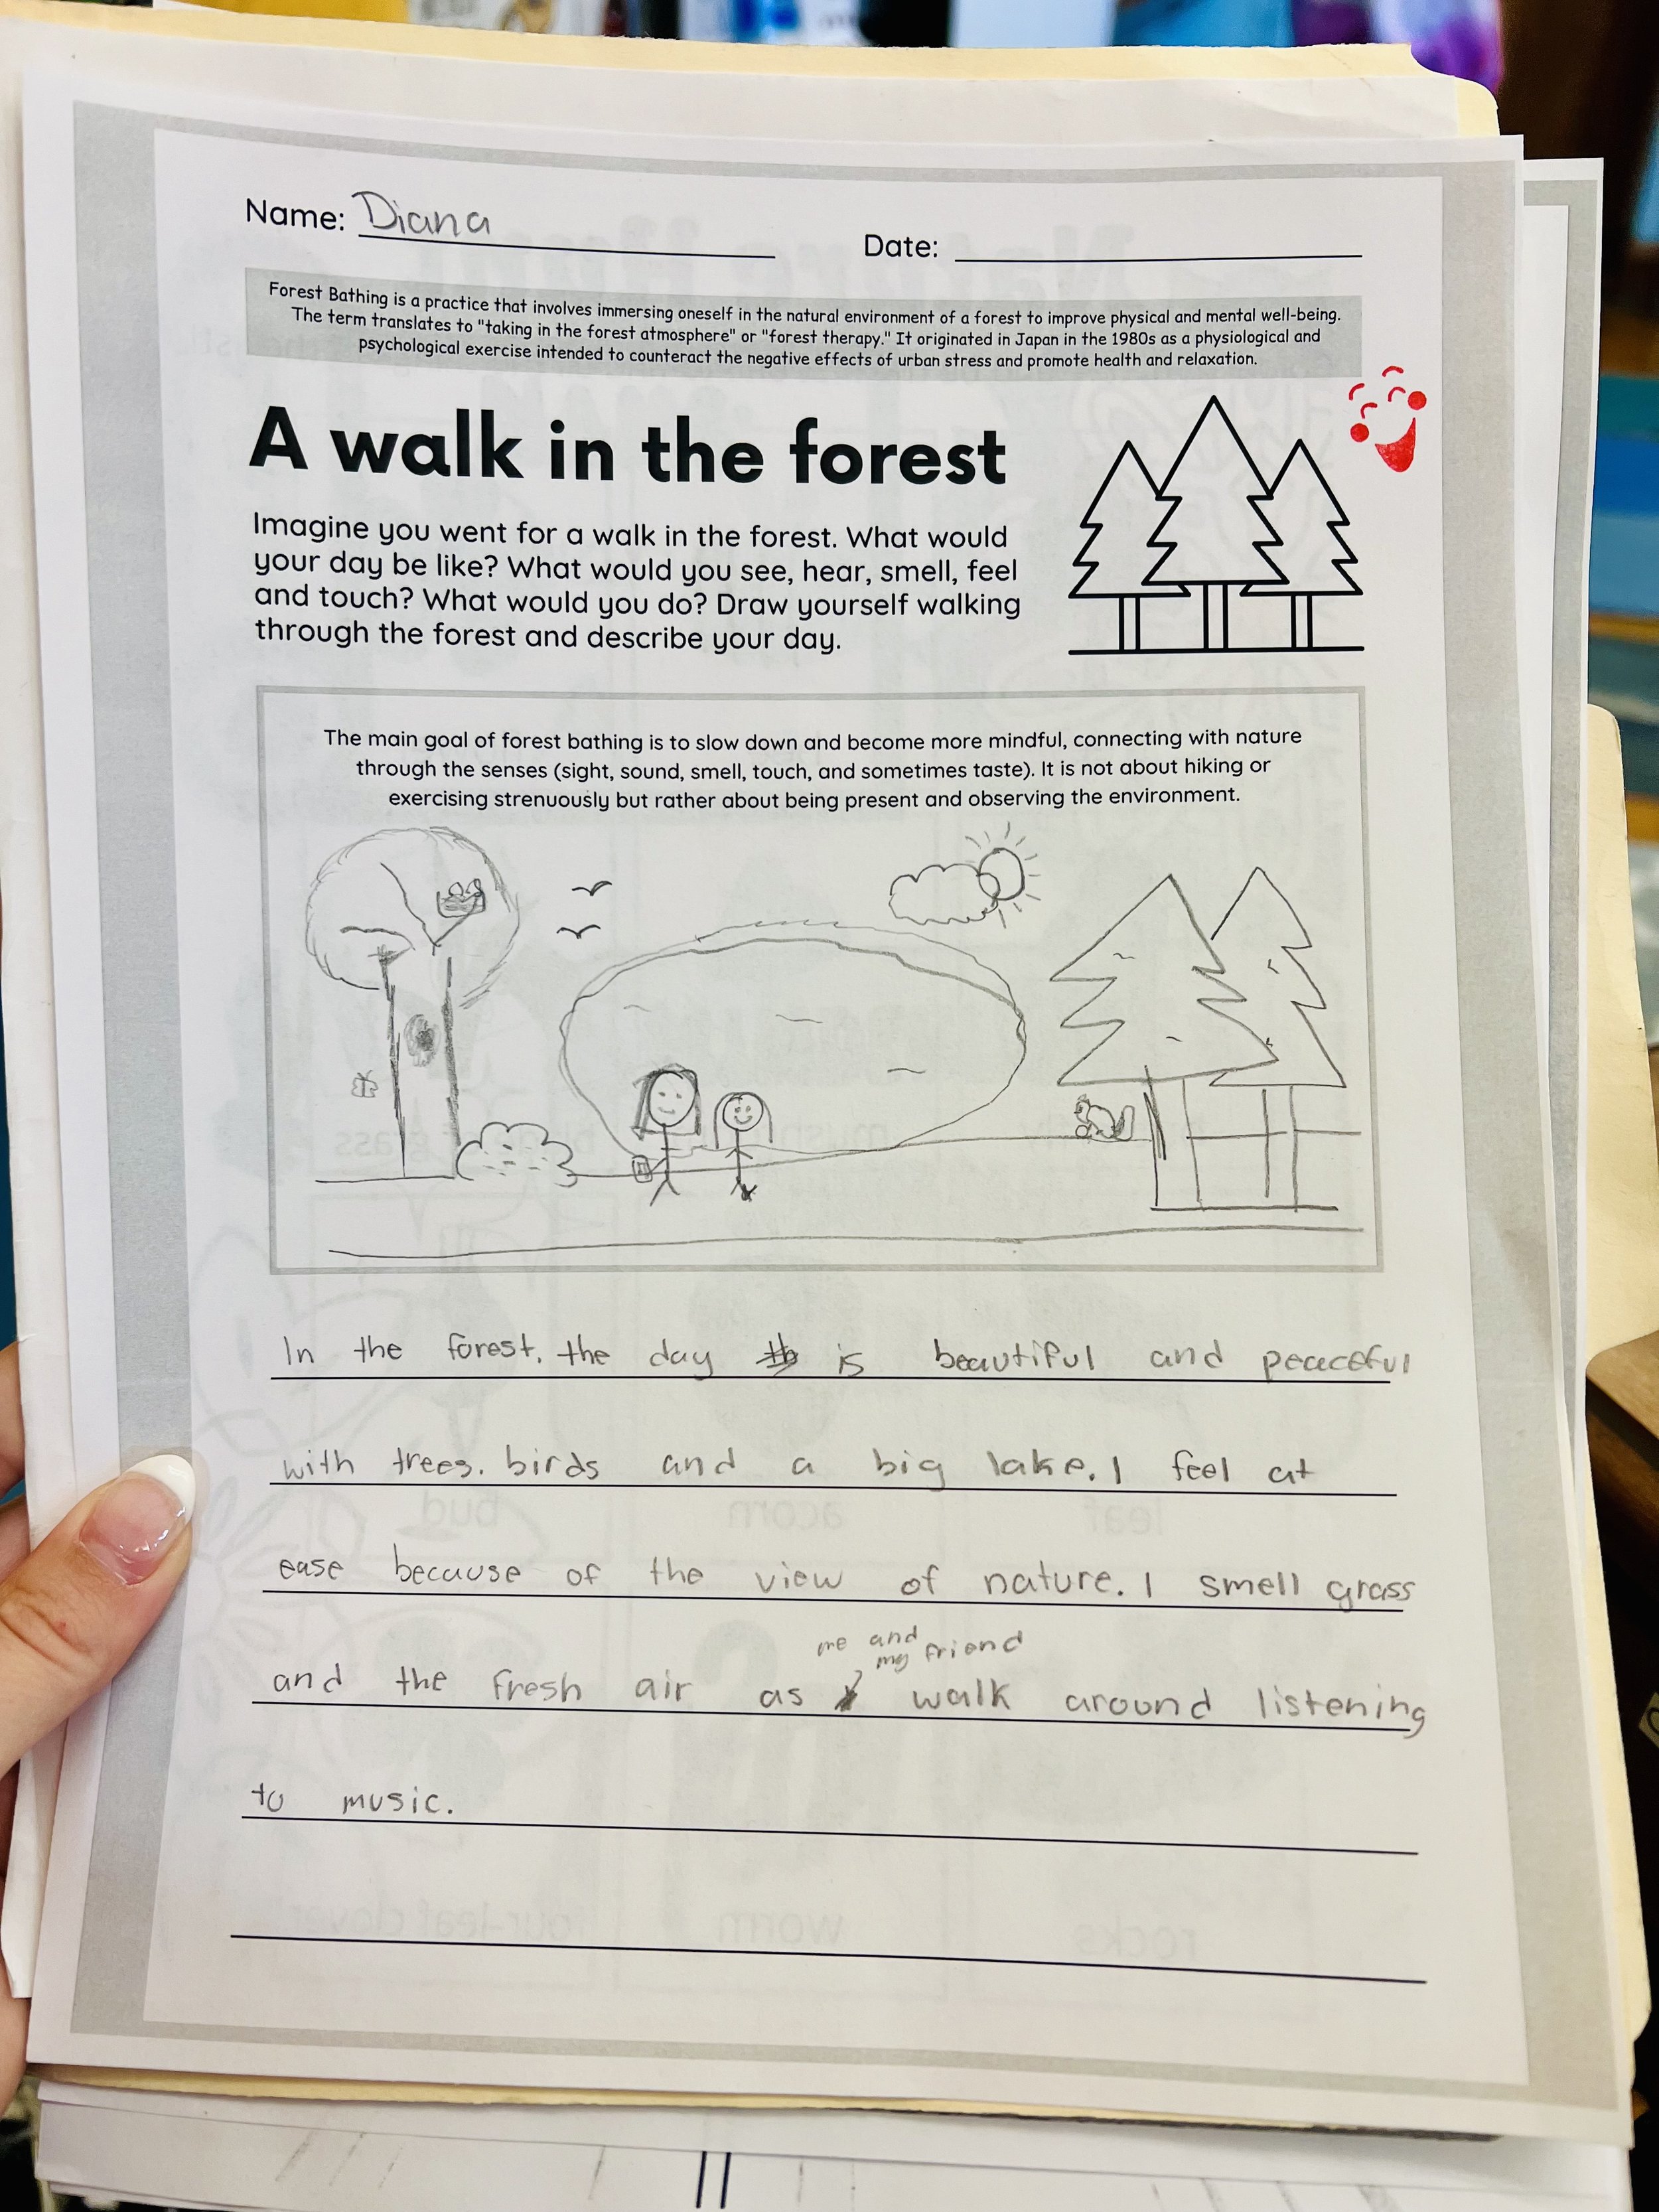 Name: Diana
Date:
Forest Bathing is a practice that involves immersing oneself in the natural environment of a forest to improve physical and mental well-being.
The term translates to "taking in the forest atmosphere" or "forest therapy." It originated in Japan in the 1980s as a physiological and
psychological exercise intended to counteract the negative effects of urban stress and promote health and relaxation.
A walk in the forest
Imagine you went for a walk in the forest. What would
your day be like? What would you see, hear, smell, feel
and touch? What would you do? Draw yourself walking
through the forest and describe your day.
The main goal of forest bathing is to slow down and become more mindful, connecting with nature
through the senses (sight, sound, smell, touch, and sometimes taste). It is not about hiking or
exercising strenuously but rather about being present and observing the environment.
In the forest, the day is beautiful and peaceful
with trees, birds and a big lake. I feel at
ease because of the view of nature. I smell grass
me and my friend
and the fresh air as walk around listening
to music.
leaf
acorn
bud
rocks
worm
four-leaf clover